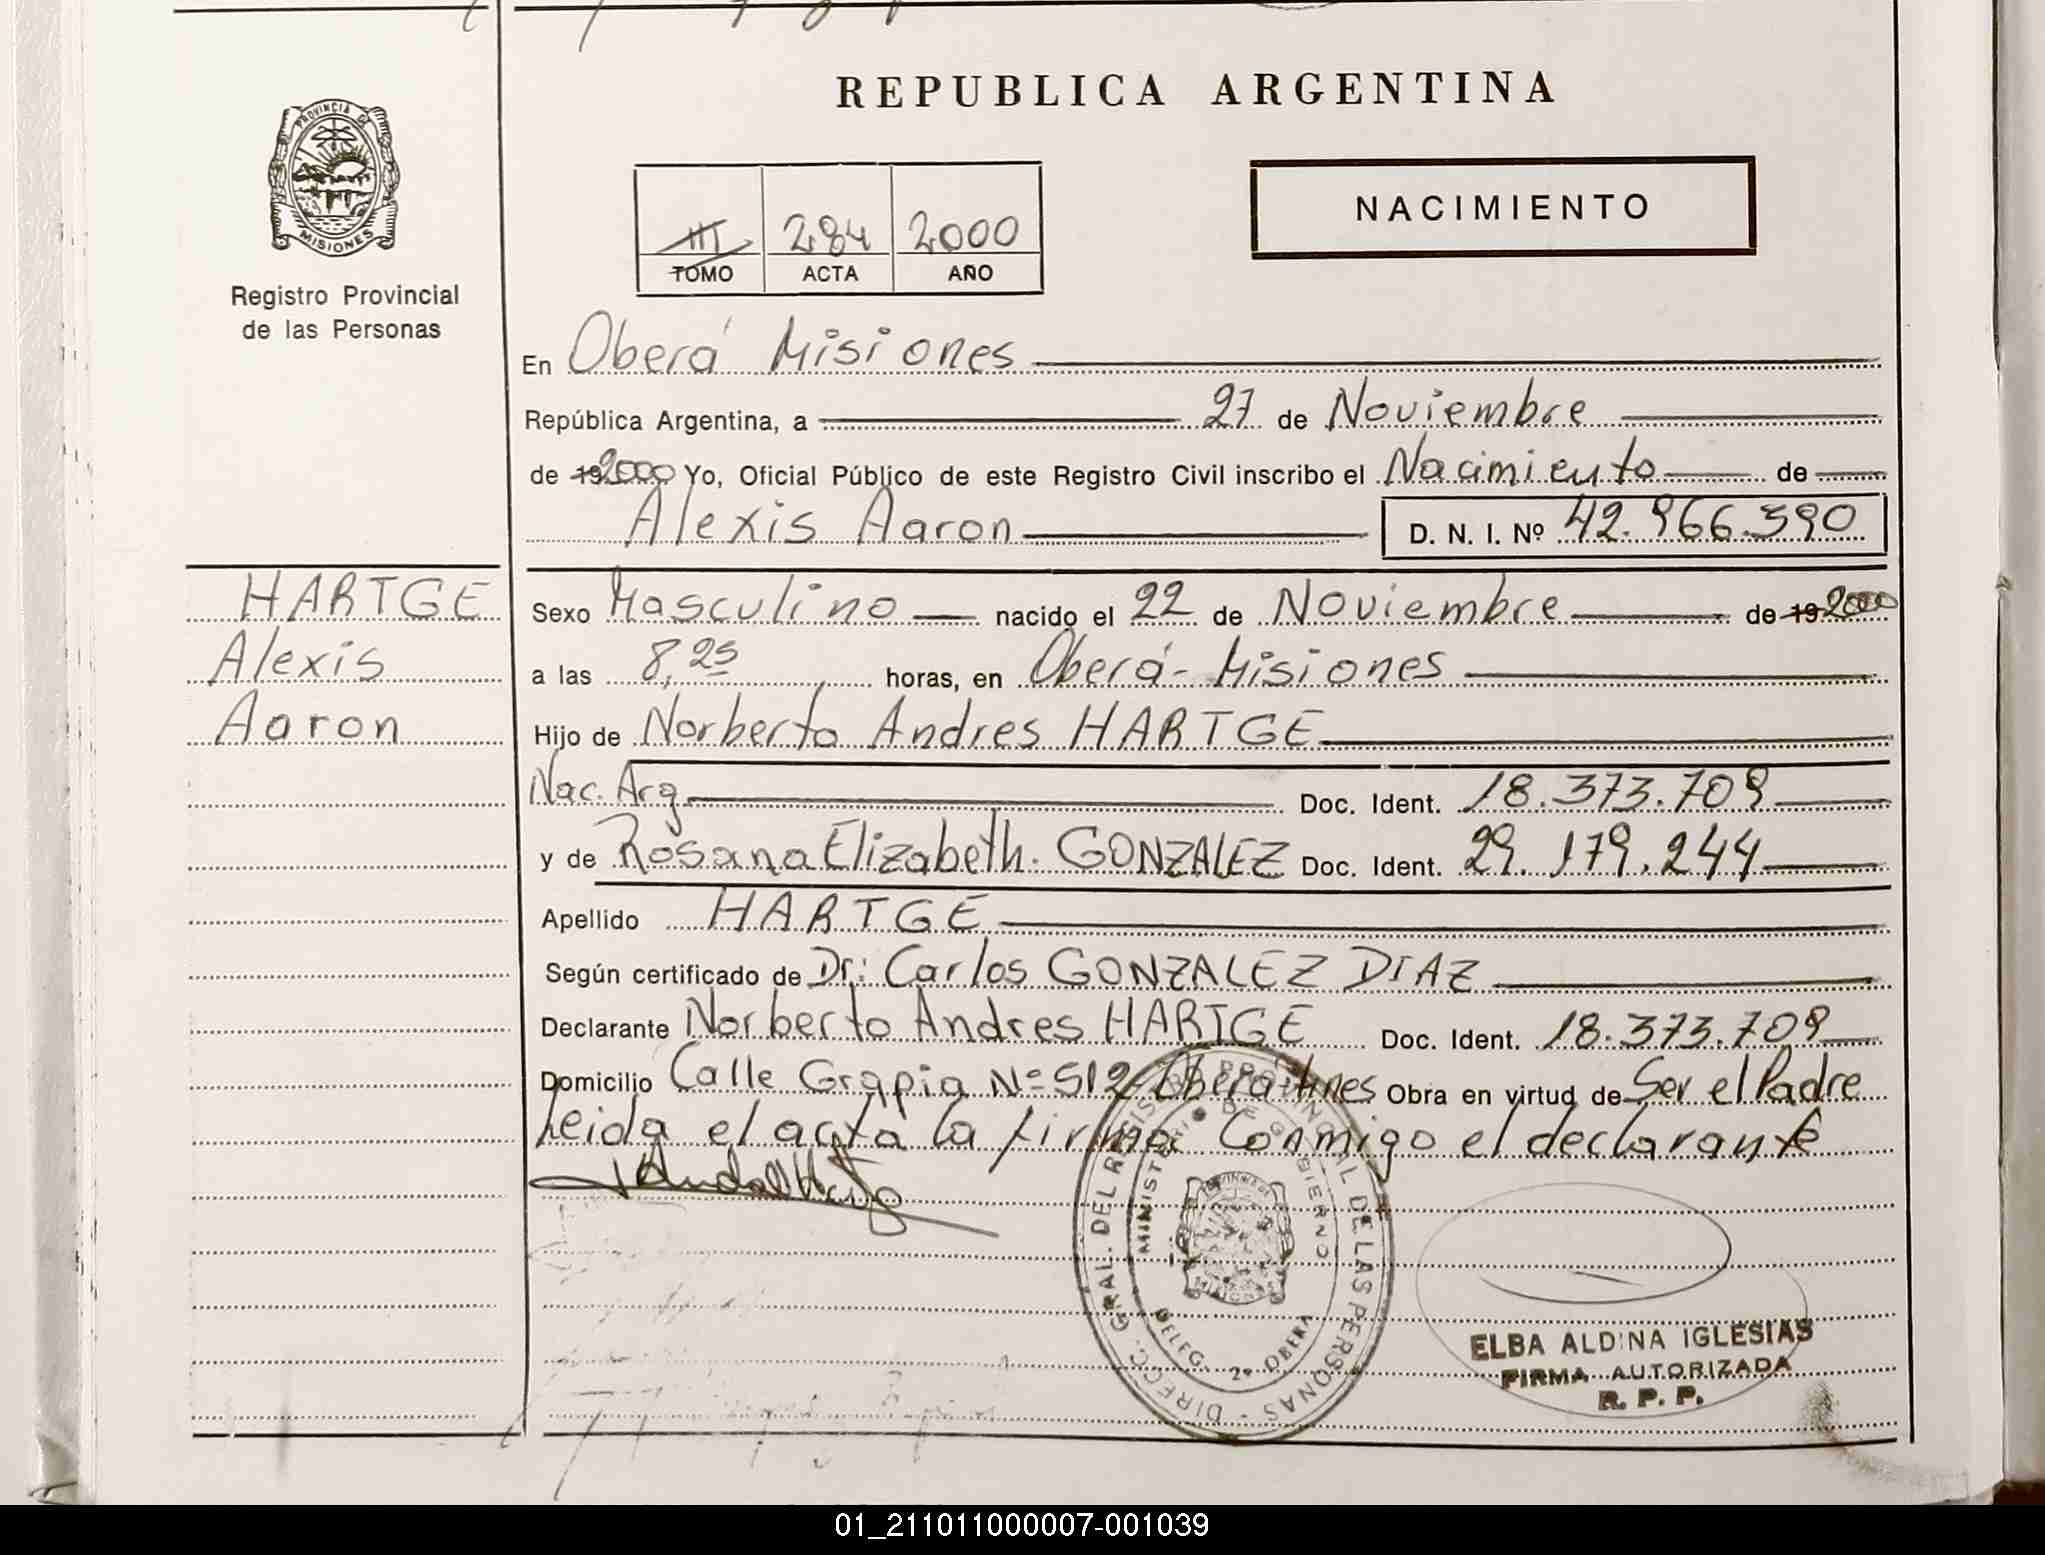 REPUBLICA ARGENTINA
PROVINCIA DE
MISIONES
Registro Provincial
de las Personas
III 284 2000
TOMO ACTA AÑO
NACIMIENTO
En Oberá Misiones
República Argentina, a 27 de Noviembre
de 192000 Yo, Oficial Público de este Registro Civil inscribo el Nacimiento de
Alexis Aaron D. N. I. Nº 42.966.390
HARTGE
Alexis
Aaron
Sexo Masculino nacido el 22 de Noviembre de 19 2000
a las 8,25 horas, en Oberá - Misiones
Hijo de Norberto Andres HARTGE
Nac. Arg Doc. Ident. 18.373.709
y de Rosana Elizabeth. GONZALEZ Doc. Ident. 29.179.244
Apellido HARTGE
Según certificado de Dr: Carlos GONZALEZ DIAZ
Declarante Norberto Andres HARTGE Doc. Ident. 18.373.709
Domicilio Calle Grapia Nº 512 Oberá Mnes Obra en virtud de Ser el Padre
Leida el acta la firma Conmigo el declarante
DIRECC. GRAL. DEL REGISTRO PROVINCIAL DE LAS PERSONAS -
MINISTERIO DE GOBIERNO
DELEG. 2º OBERA
ELBA ALDINA IGLESIAS
FIRMA AUTORIZADA
R. P. P.
01_211011000007-001039